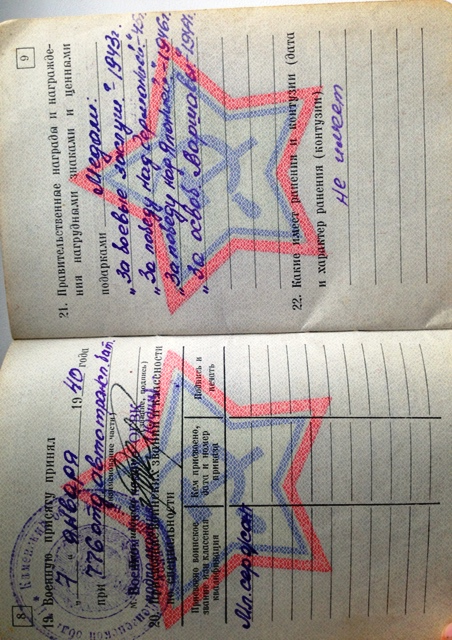 8
19. Военную присягу принял
„ 7 “ января 1940 года
при 776 отд. автотрансп. бат.
(наименование части)
20. 
воинских званий и классности
по специальности
Присвоено воинское
звание или классная
квалификация
Кем присвоено,
дата и номер
приказа
Подпись и
печать
Мл. сержант
9
21. Правительственные награды и награжде-
ния нагрудными знаками и ценными
подарками Медали:
„За боевые заслуги“ - 1943г.
„За победу над Германией“-45г.
„За победу над Японией“-1946г.
„За освоб. Варшавы“-194
22. Какие имеет ранения и контузии (дата
и характер ранения (контузии)
не имеет